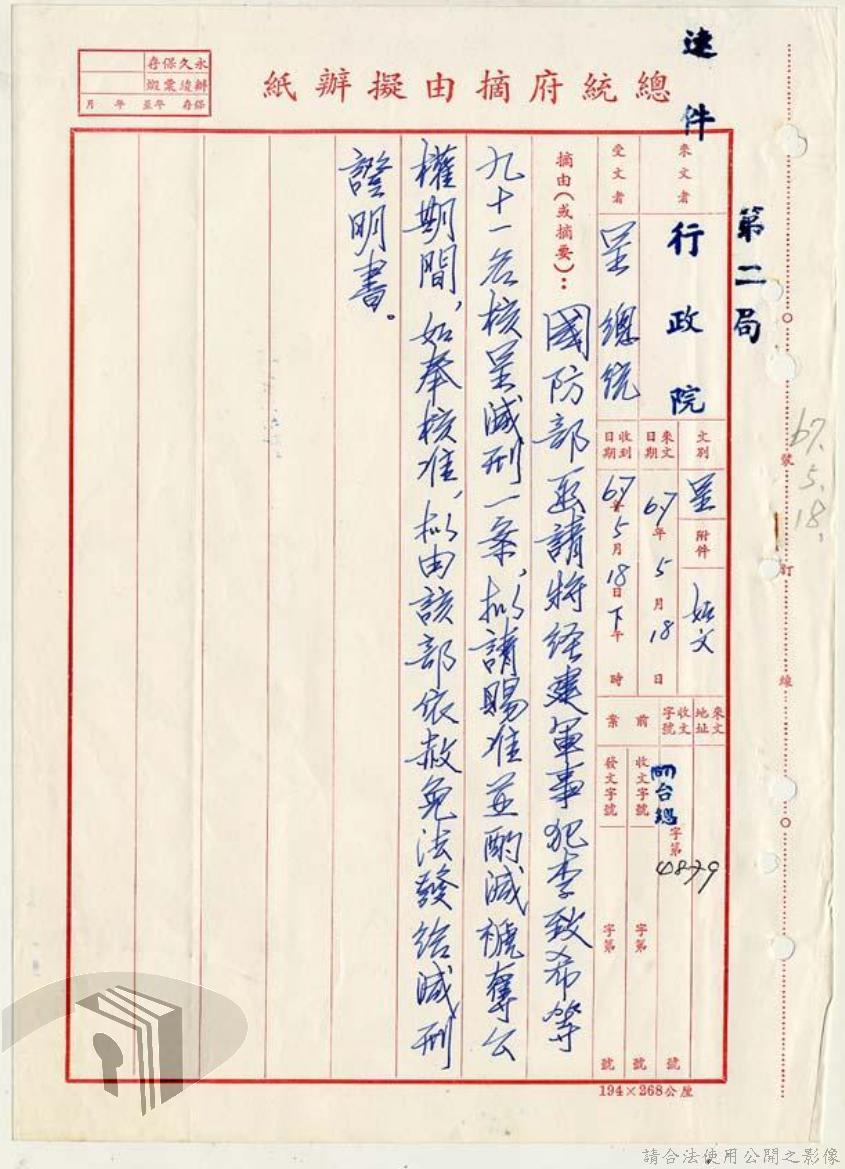 速件
總統府摘由擬辦紙
永久保存
辦後彙繳
保存 年至 年 月
第二局
來文者 行政院
受文者 呈總統
文別 呈
附件 如文
來文日期 67年5月18日
收到日期 67年5月18日下午 時
來文地址
收文字號 台總字第4879號
前案
收文字號 字第 號
發文字號 字第 號
摘由(或摘要):國防部函請將經建軍事犯李致希等
九十一名核呈減刑一案,擬請賜准並酌減褫奪公
權期間,如奉核准,擬由該部依赦免法發給減刑
證明書。
67.5.18.
號
訂
線
194×268公厘
請合法使用公開之影像